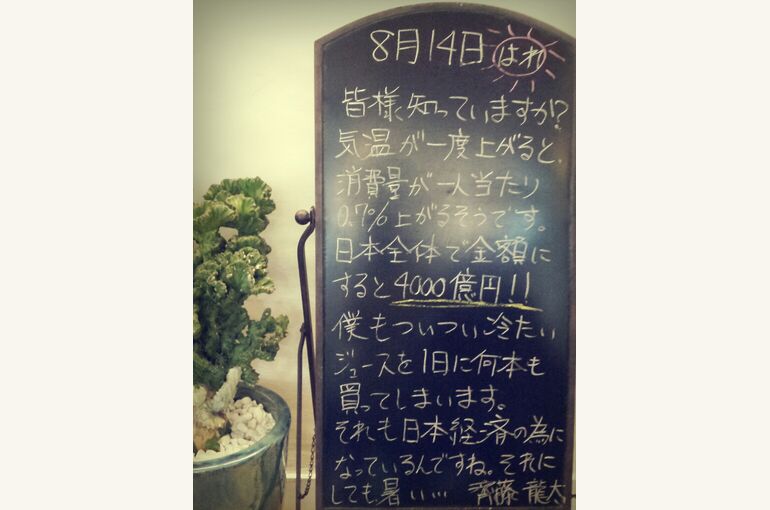 8月14日 はれ
皆様、知っていますか?
気温が一度上がると、
消費量が一人当たり
0.7%上がるそうです。
日本全体で金額に
すると4000億円!!
僕もついつい冷たい
ジュースを1日に何本も
買ってしまいます。
それも日本経済の為に
なっているんですね。それに
しても、暑い… 齊藤 龍太